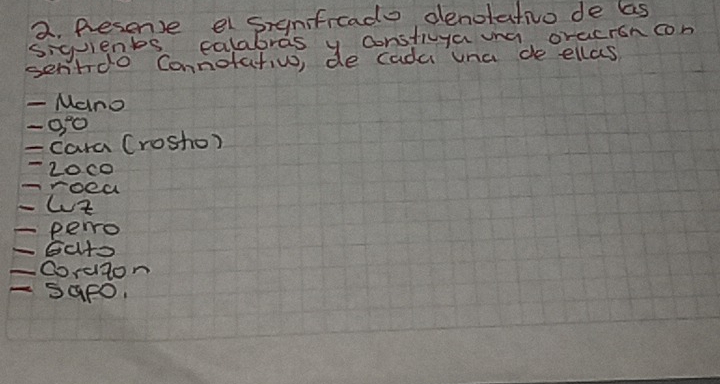 2. Presente el significado denotativo de las
siguientes palabras y constituya una oración con
sentido connotativo, de cada una de ellas
- Mano
- ojo
- Cara (rostro)
- Loco
- roca
- Luz
- perro
- Gato
- Corazon
- Sapo.